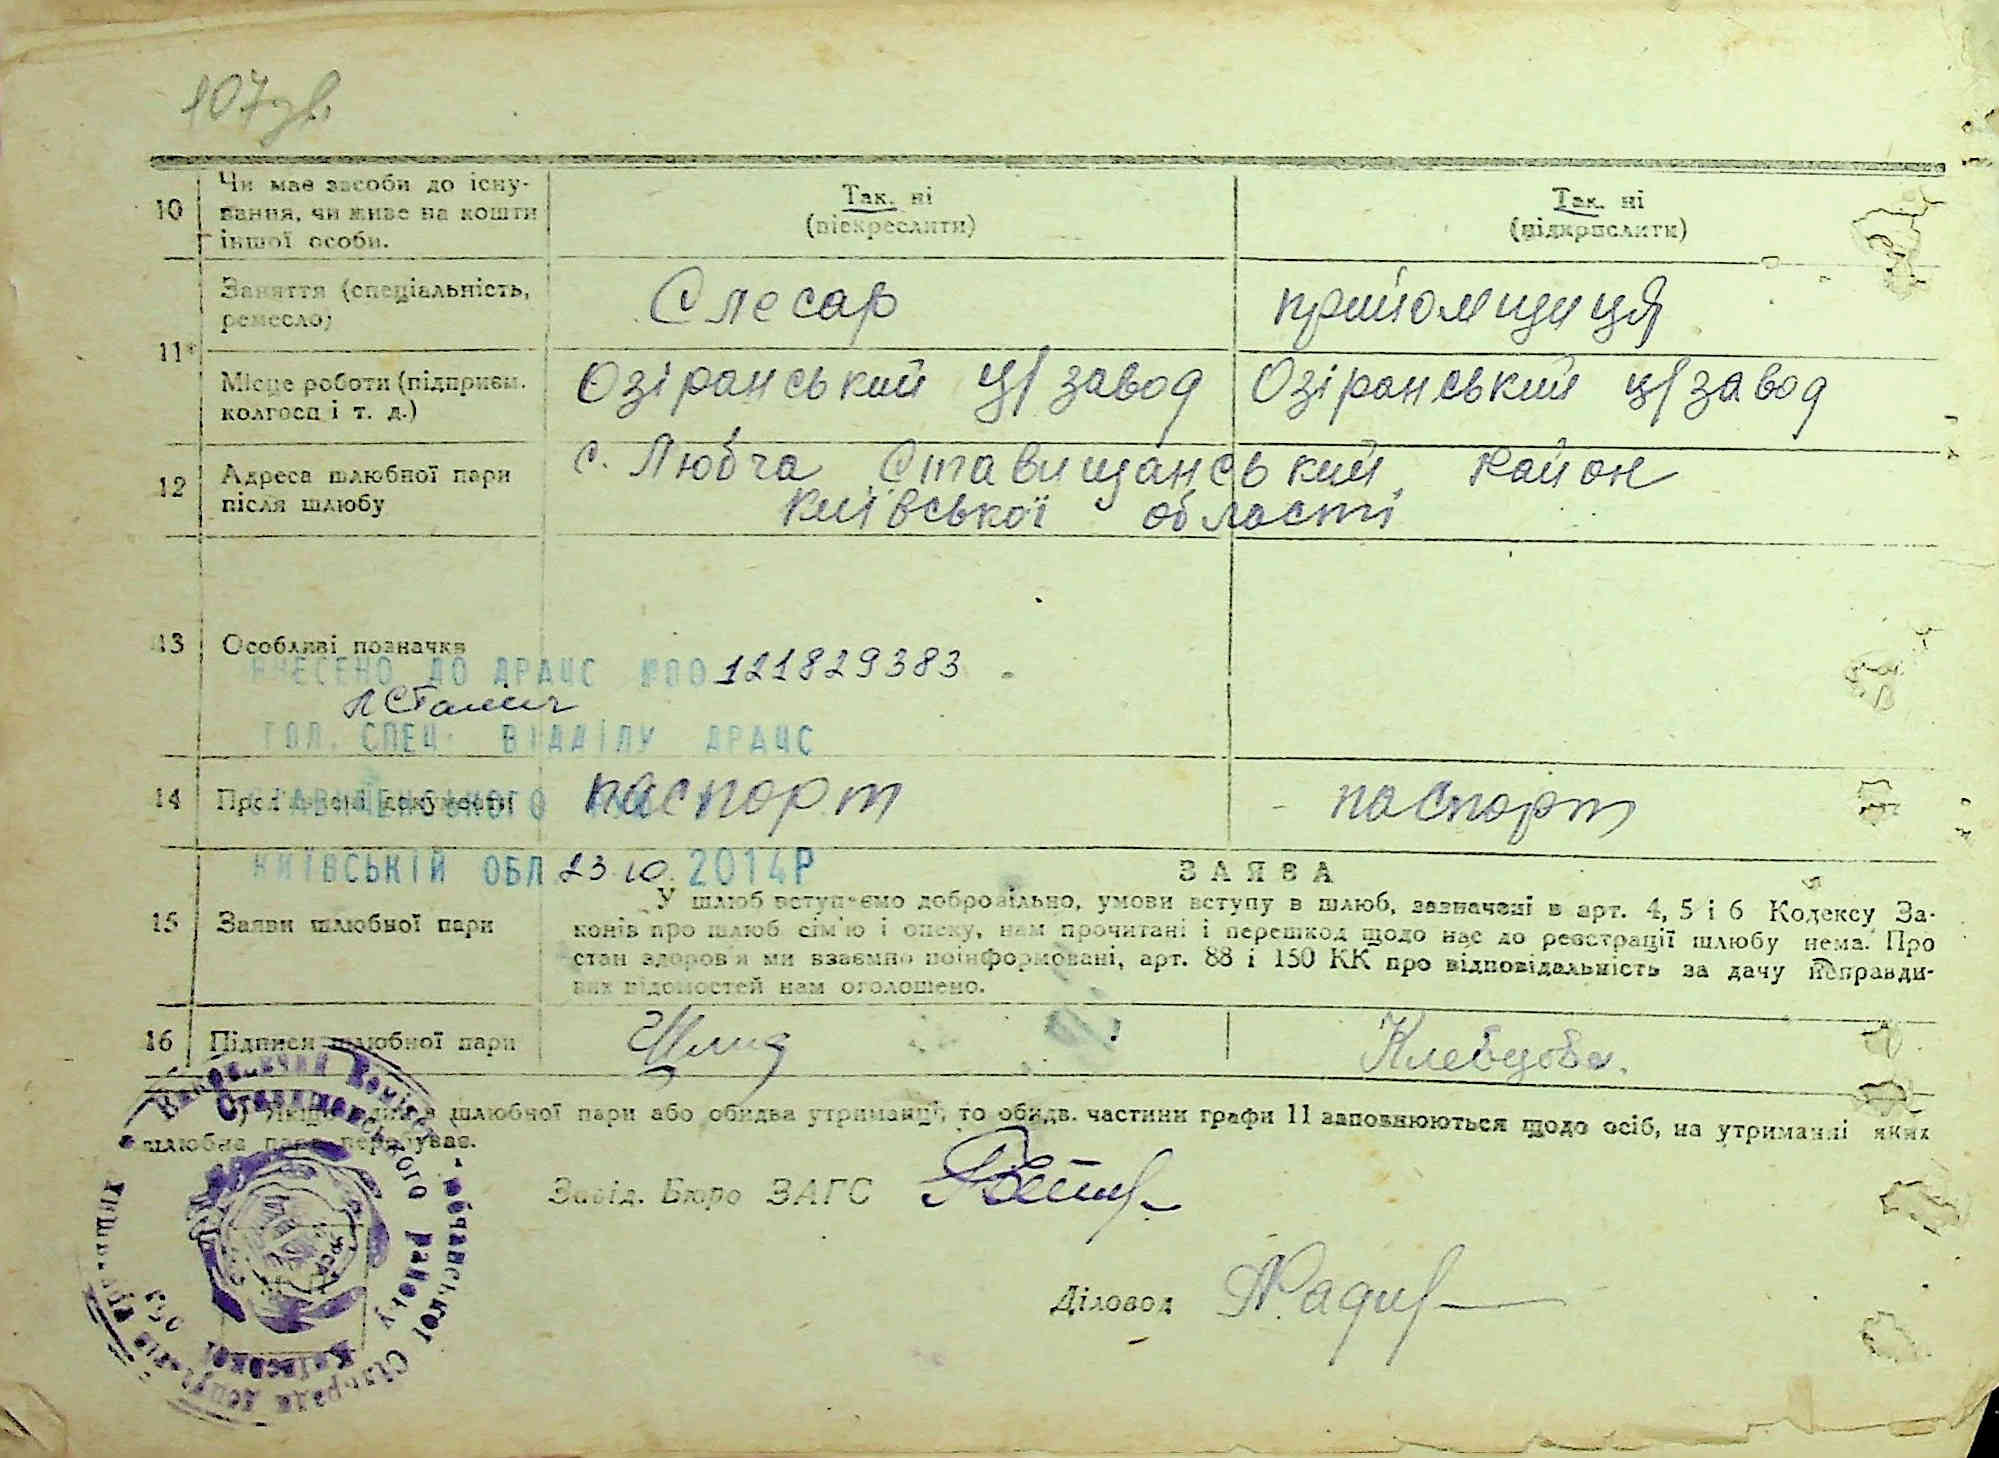 107зв.
10 Чи має засоби до існу-
вання, чи живе на кошти
іншої особи.
Так, ні
(підкреслити)
Так, ні
(підкреслити)
11*
Заняття (спеціальність,
ремесло)
Слесар
прийомщиця
Місце роботи (підприєм.
колгосп і т. д.)
Озіранський ц/завод
Озіранський ц/завод
12 Адреса шлюбної пари
після шлюбу
с. Любча Ставищанський район
Київської області
13 Особливі позначки
ВНЕСЕНО ДО ДРАЦС №00121829383
ГОЛ. СПЕЦ. ВІДДІЛУ ДРАЦС
14 документи
паспорт
паспорт
КИЇВСЬКІЙ ОБЛ. 23.10.2014Р
15 Заяви шлюбної пари
ЗАЯВА
У шлюб вступаємо добровільно, умови вступу в шлюб, зазначені в арт. 4, 5 і 6 Кодексу За-
конів про шлюб сім'ю і опеку, нам прочитані і перешкод щодо нас до реєстрації шлюбу нема. Про
стан здоров'я ми взаємно поінформовані, арт. 88 і 150 КК про відповідальність за дачу неправди-
вих відомостей нам оголошено.
16 Підписи шлюбної пари
Клевцова.
*) Якщо один з шлюбної пари або обидва утриманці, то обидв. частини графи 11 заповнюються щодо осіб, на утриманні яких
шлюбна пара перебуває.
Завід. Бюро ЗАГС
Діловод
Виконавчий Коміт
Ставищанського району
Київської